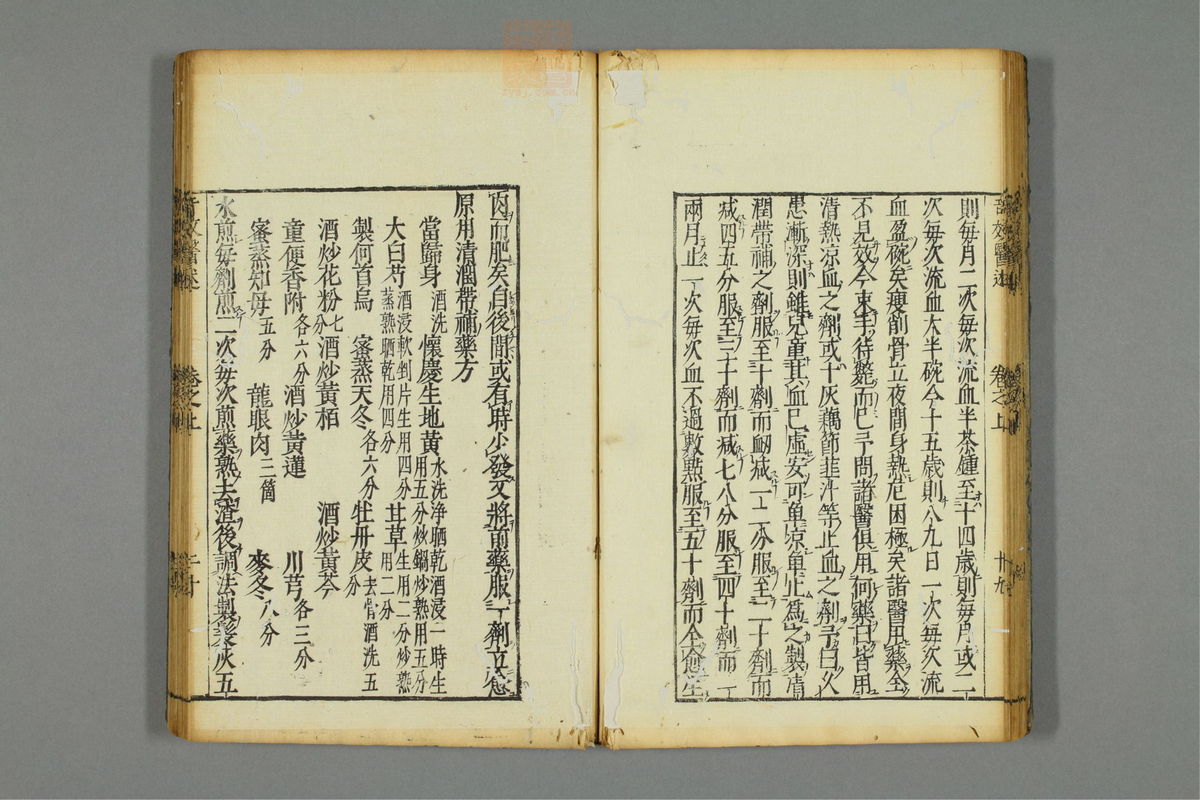 則每月二次每次流血半茶鍾至十四歲則每月或二
次每次流血大半碗今十五歲則八九日一次每次流
血盈碗矣瘦削骨立夜間身熱危困極矣諸醫用藥全
不見效今束手待斃而已予問諸醫俱用何藥曰皆用
清熱凉血之劑或十灰藕節韮汁等止血之劑予曰久
患漸深則雖兒童其血已虛安可单凉单止爲之製清
潤帶補之劑服至十劑而衂减一二分服至二十劑而
减四五分服至三十劑而减七八分服至四十劑而一
兩月止一次每次血不過數點服至五十劑而全愈生
肉而肥矣自後間或有時少發又將前藥服一劑立愈
原用清潤帶補藥方
當歸身酒洗 懷慶生地黃水洗净晒乾酒浸一時生用五分炒鍋炒熟用五分
大白芍酒浸軟剉片生用四分蒸熟晒乾用四分 甘草生用二分炒熟用二分
製何首烏 蜜蒸天冬各六分 牡丹皮去骨酒洗五分
酒炒花粉七分 酒炒黃栢 酒炒黃芩
童便香附各六分 酒炒黃連 川芎各三分
蜜蒸知母五分 龍眼肉三箇 麥冬八分
水煎每劑煎二次每次煎藥熟去渣後調法製髮灰五
卷之上
卅九
卷之上